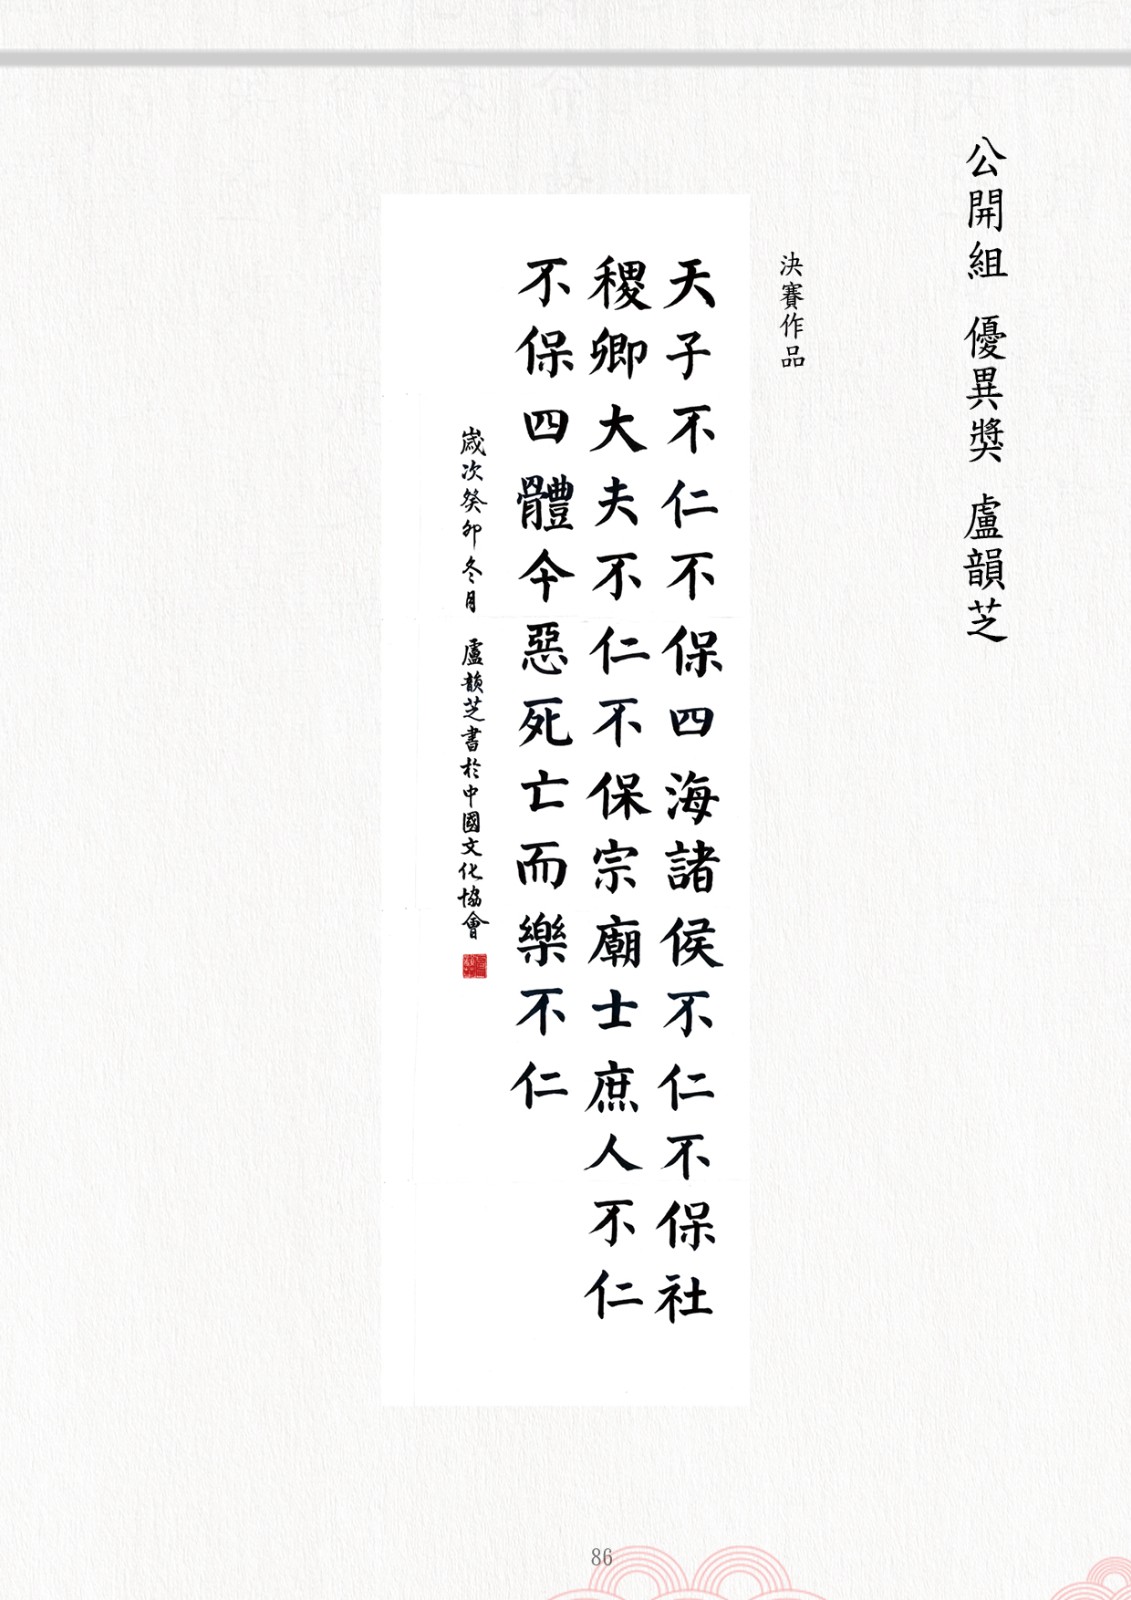 公開組 優異獎 盧韻芝
決賽作品
天子不仁不保四海諸侯不仁不保社
稷卿大夫不仁不保宗廟士庶人不仁
不保四體今惡死亡而樂不仁
歲次癸卯冬月 盧韻芝書於中國文化協會
86